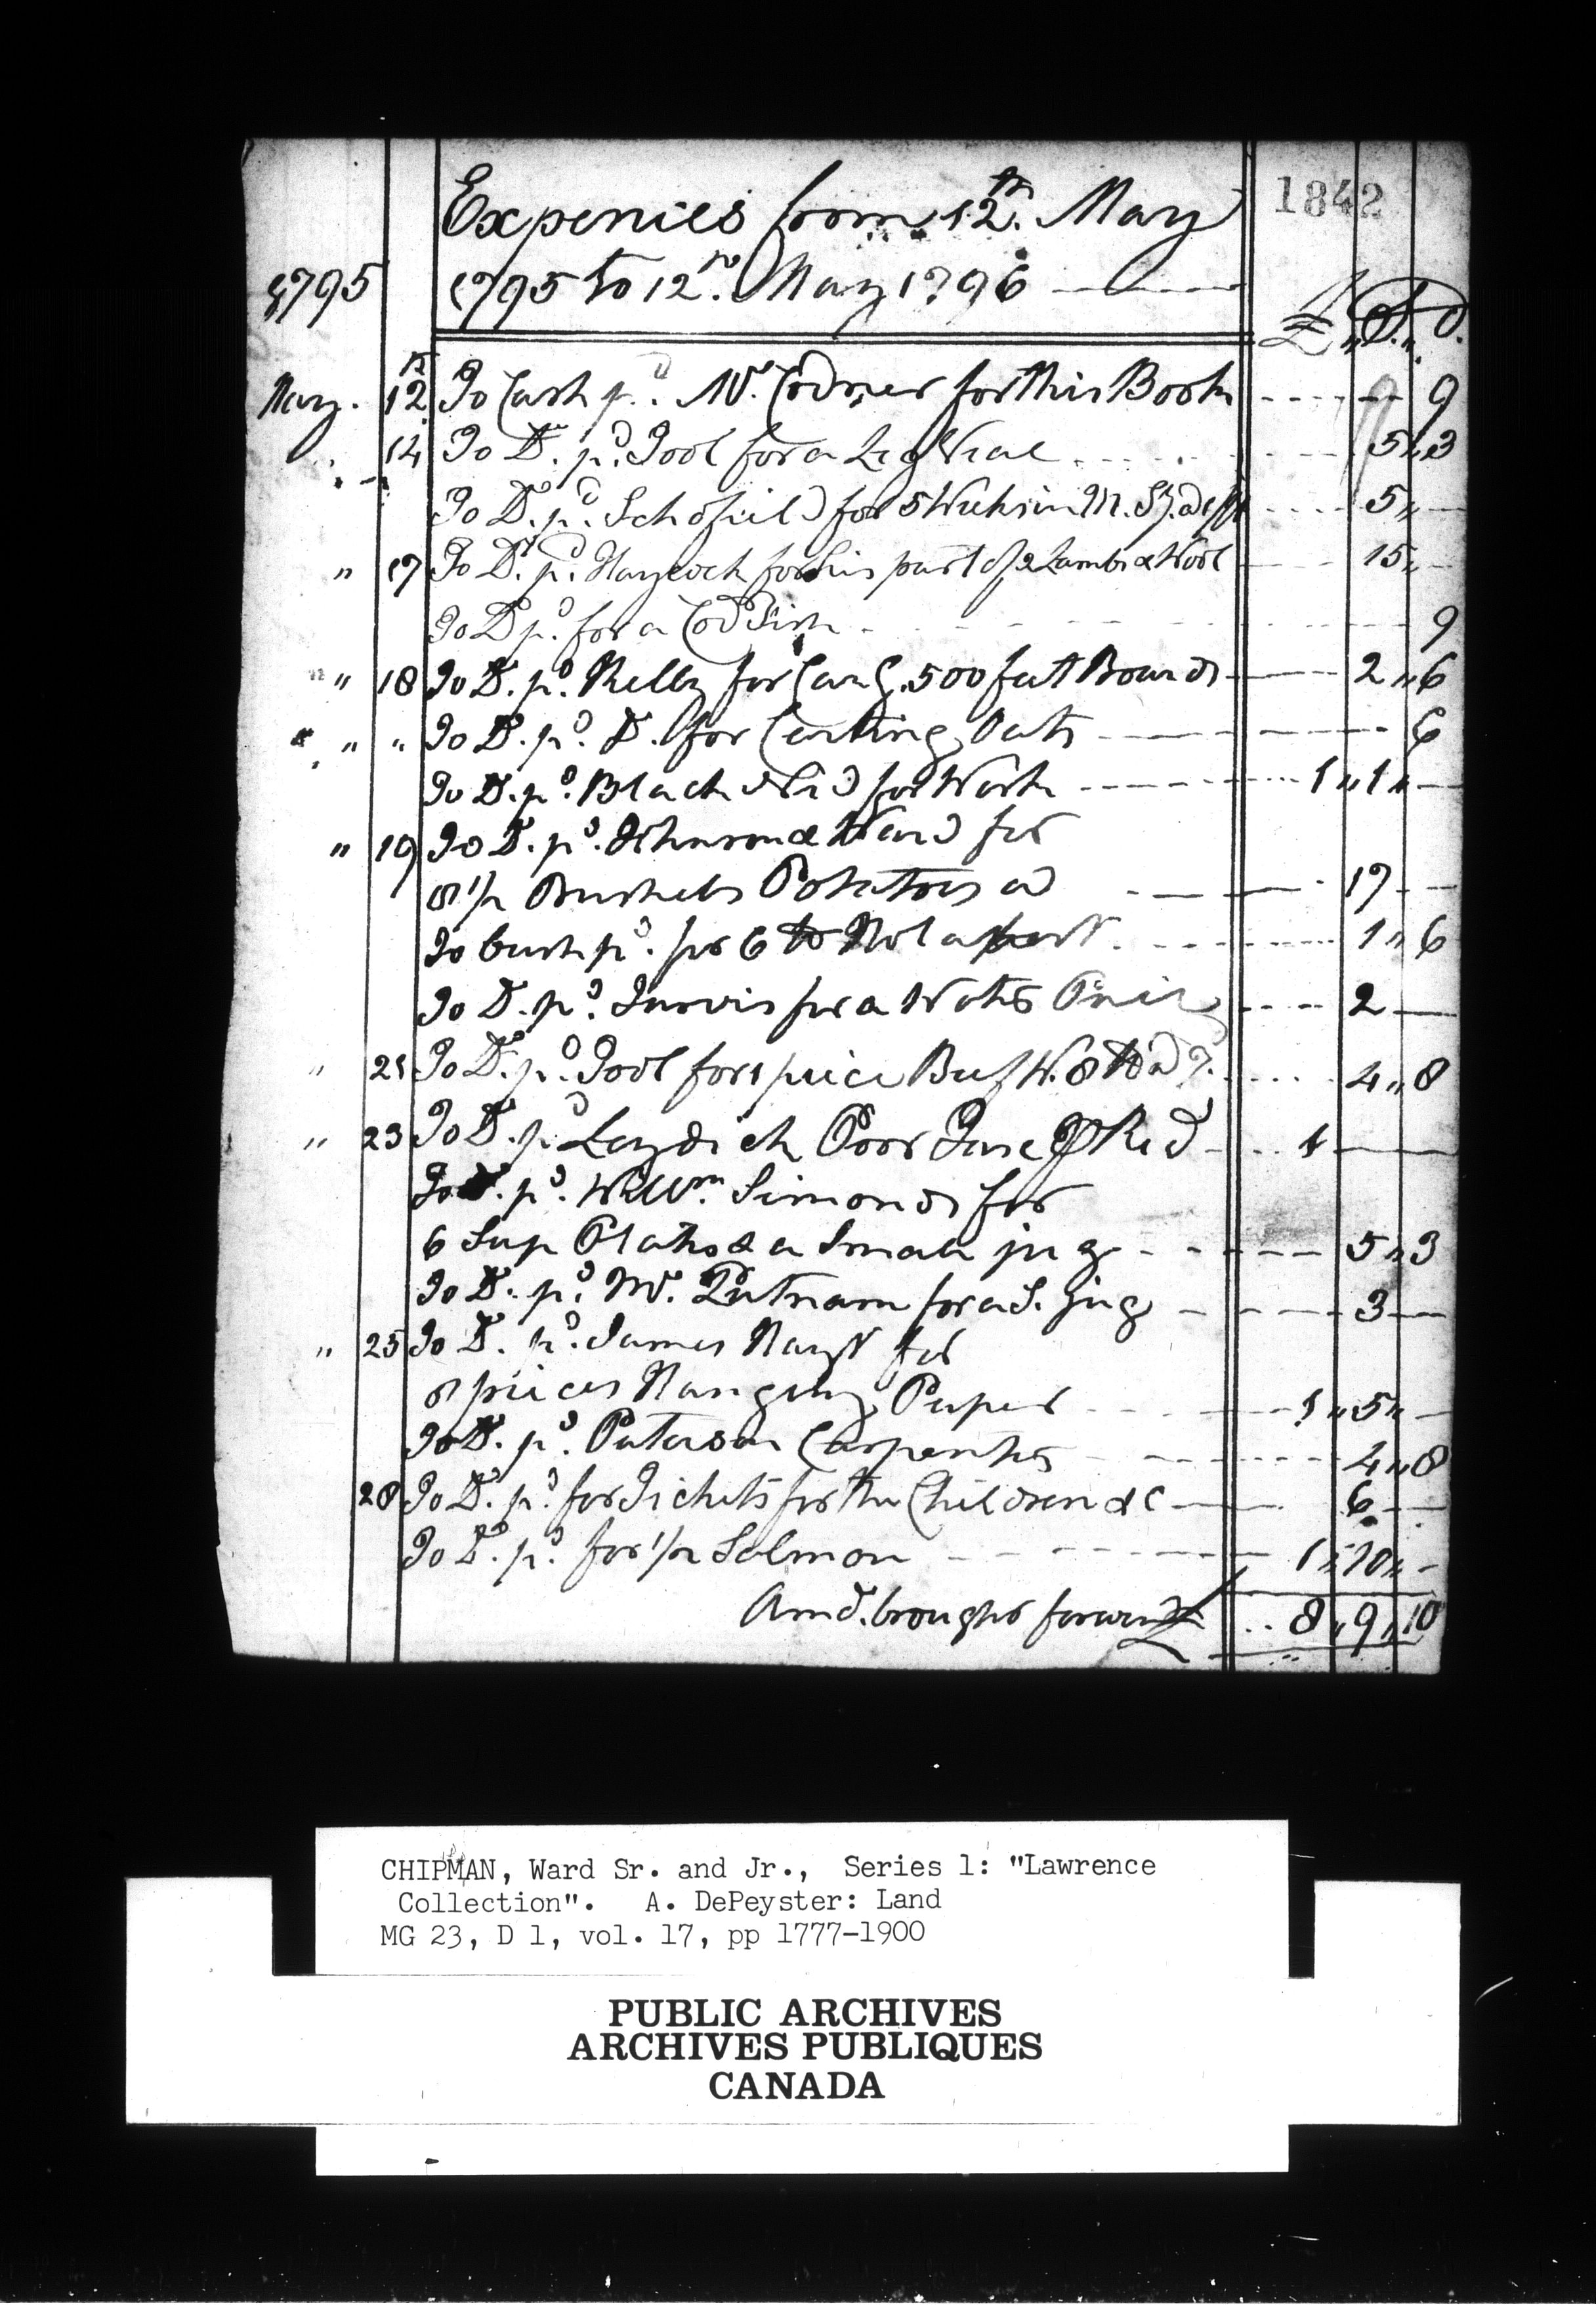 1842
Expences from 12th. May
1795
1795 to 12th. May 1796
£ „ S. „ d.
May. 12th To Cash pd. Mr. Codner for this Book 9
14 To Do. pd. Tool for a Leg Veal 5 „ 3
To Do. pd. Schofield for 5 Weeks in 5 „
„ 17 To Do. pd. Haycock for his part of 2 Lambs & Wool 15 „
To Do pd. for a Cod Fish 9
„ 18 To Do. pd. Kelly for 500 feet Boards 2 „ 6
„ „ To Do. pd. Do. for Carting Oats 6
To Do. pd. Black Ned for Work 1 „ 1 „
„ 19 To Do. pd. Johnson & Ward for
8 1/2 Bushels Potatoes a 17
To Cash pd. for 6 lb 1 „ 6
To Do. pd. Jarvis for a Water 2
„ 21 To Do. pd. Tool for 1 piece Beef W. 8 lb a 7. 4 „ 8
„ 23 To Do. pd. Leydick Poor 1
To Do. pd. Willm. Simonds for
6 Sup Plates & a Small jug 5 „ 3
To Do. pd. Mr. Putnam for a S. jug 3
„ 25 To Do. pd. James Hayt for
8 pieces Hanging Paper 1 „ 5 „
To Do. pd. Paterson Carpenter 4 „ 8
28 To Do. pd. for Tickets for the Children &c 6
To Do. pd. for 1/2 Salmon 1 „ 10 „
Amt. brought forward £ 8 „ 9 „ 10
CHIPMAN, Ward Sr. and Jr., Series 1: "Lawrence
Collection". A. DePeyster: Land
MG 23, D 1, vol. 17, pp 1777-1900
PUBLIC ARCHIVES
ARCHIVES PUBLIQUES
CANADA